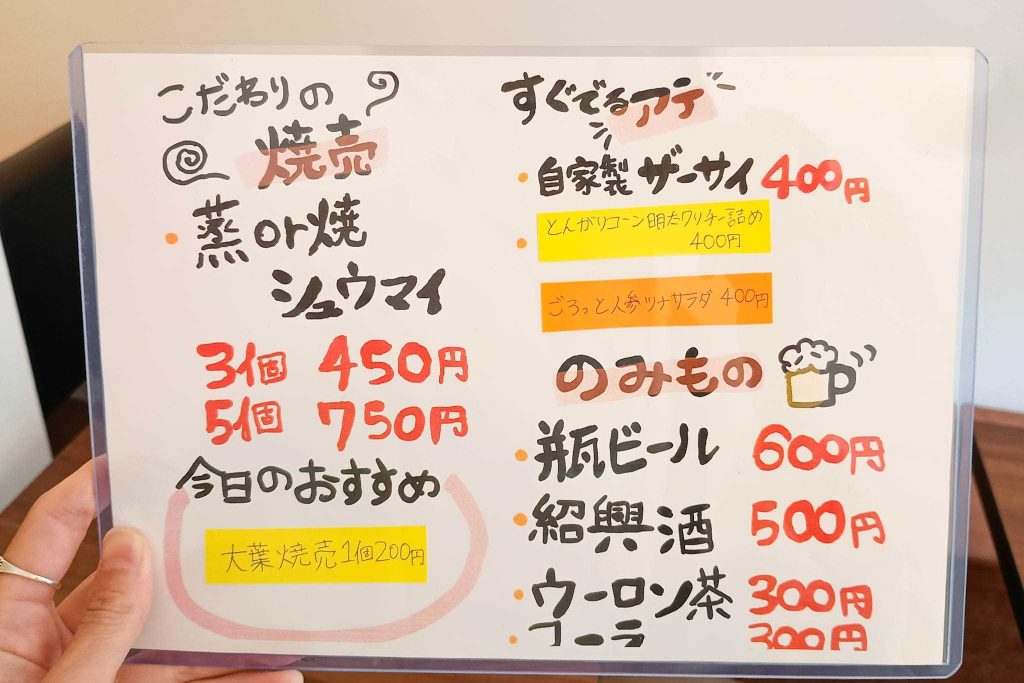 こだわりの
焼売
蒸or焼
シュウマイ
3個 450円
5個 750円
今日のおすすめ
大葉焼売1個200円
すぐでるアテ
自家製ザーサイ 400円
とんがりコーン明太クリチー詰め
400円
ごろっと人参ツナサラダ 400円
のみもの
瓶ビール 600円
紹興酒 500円
ウーロン茶 300円
コーラ 300円